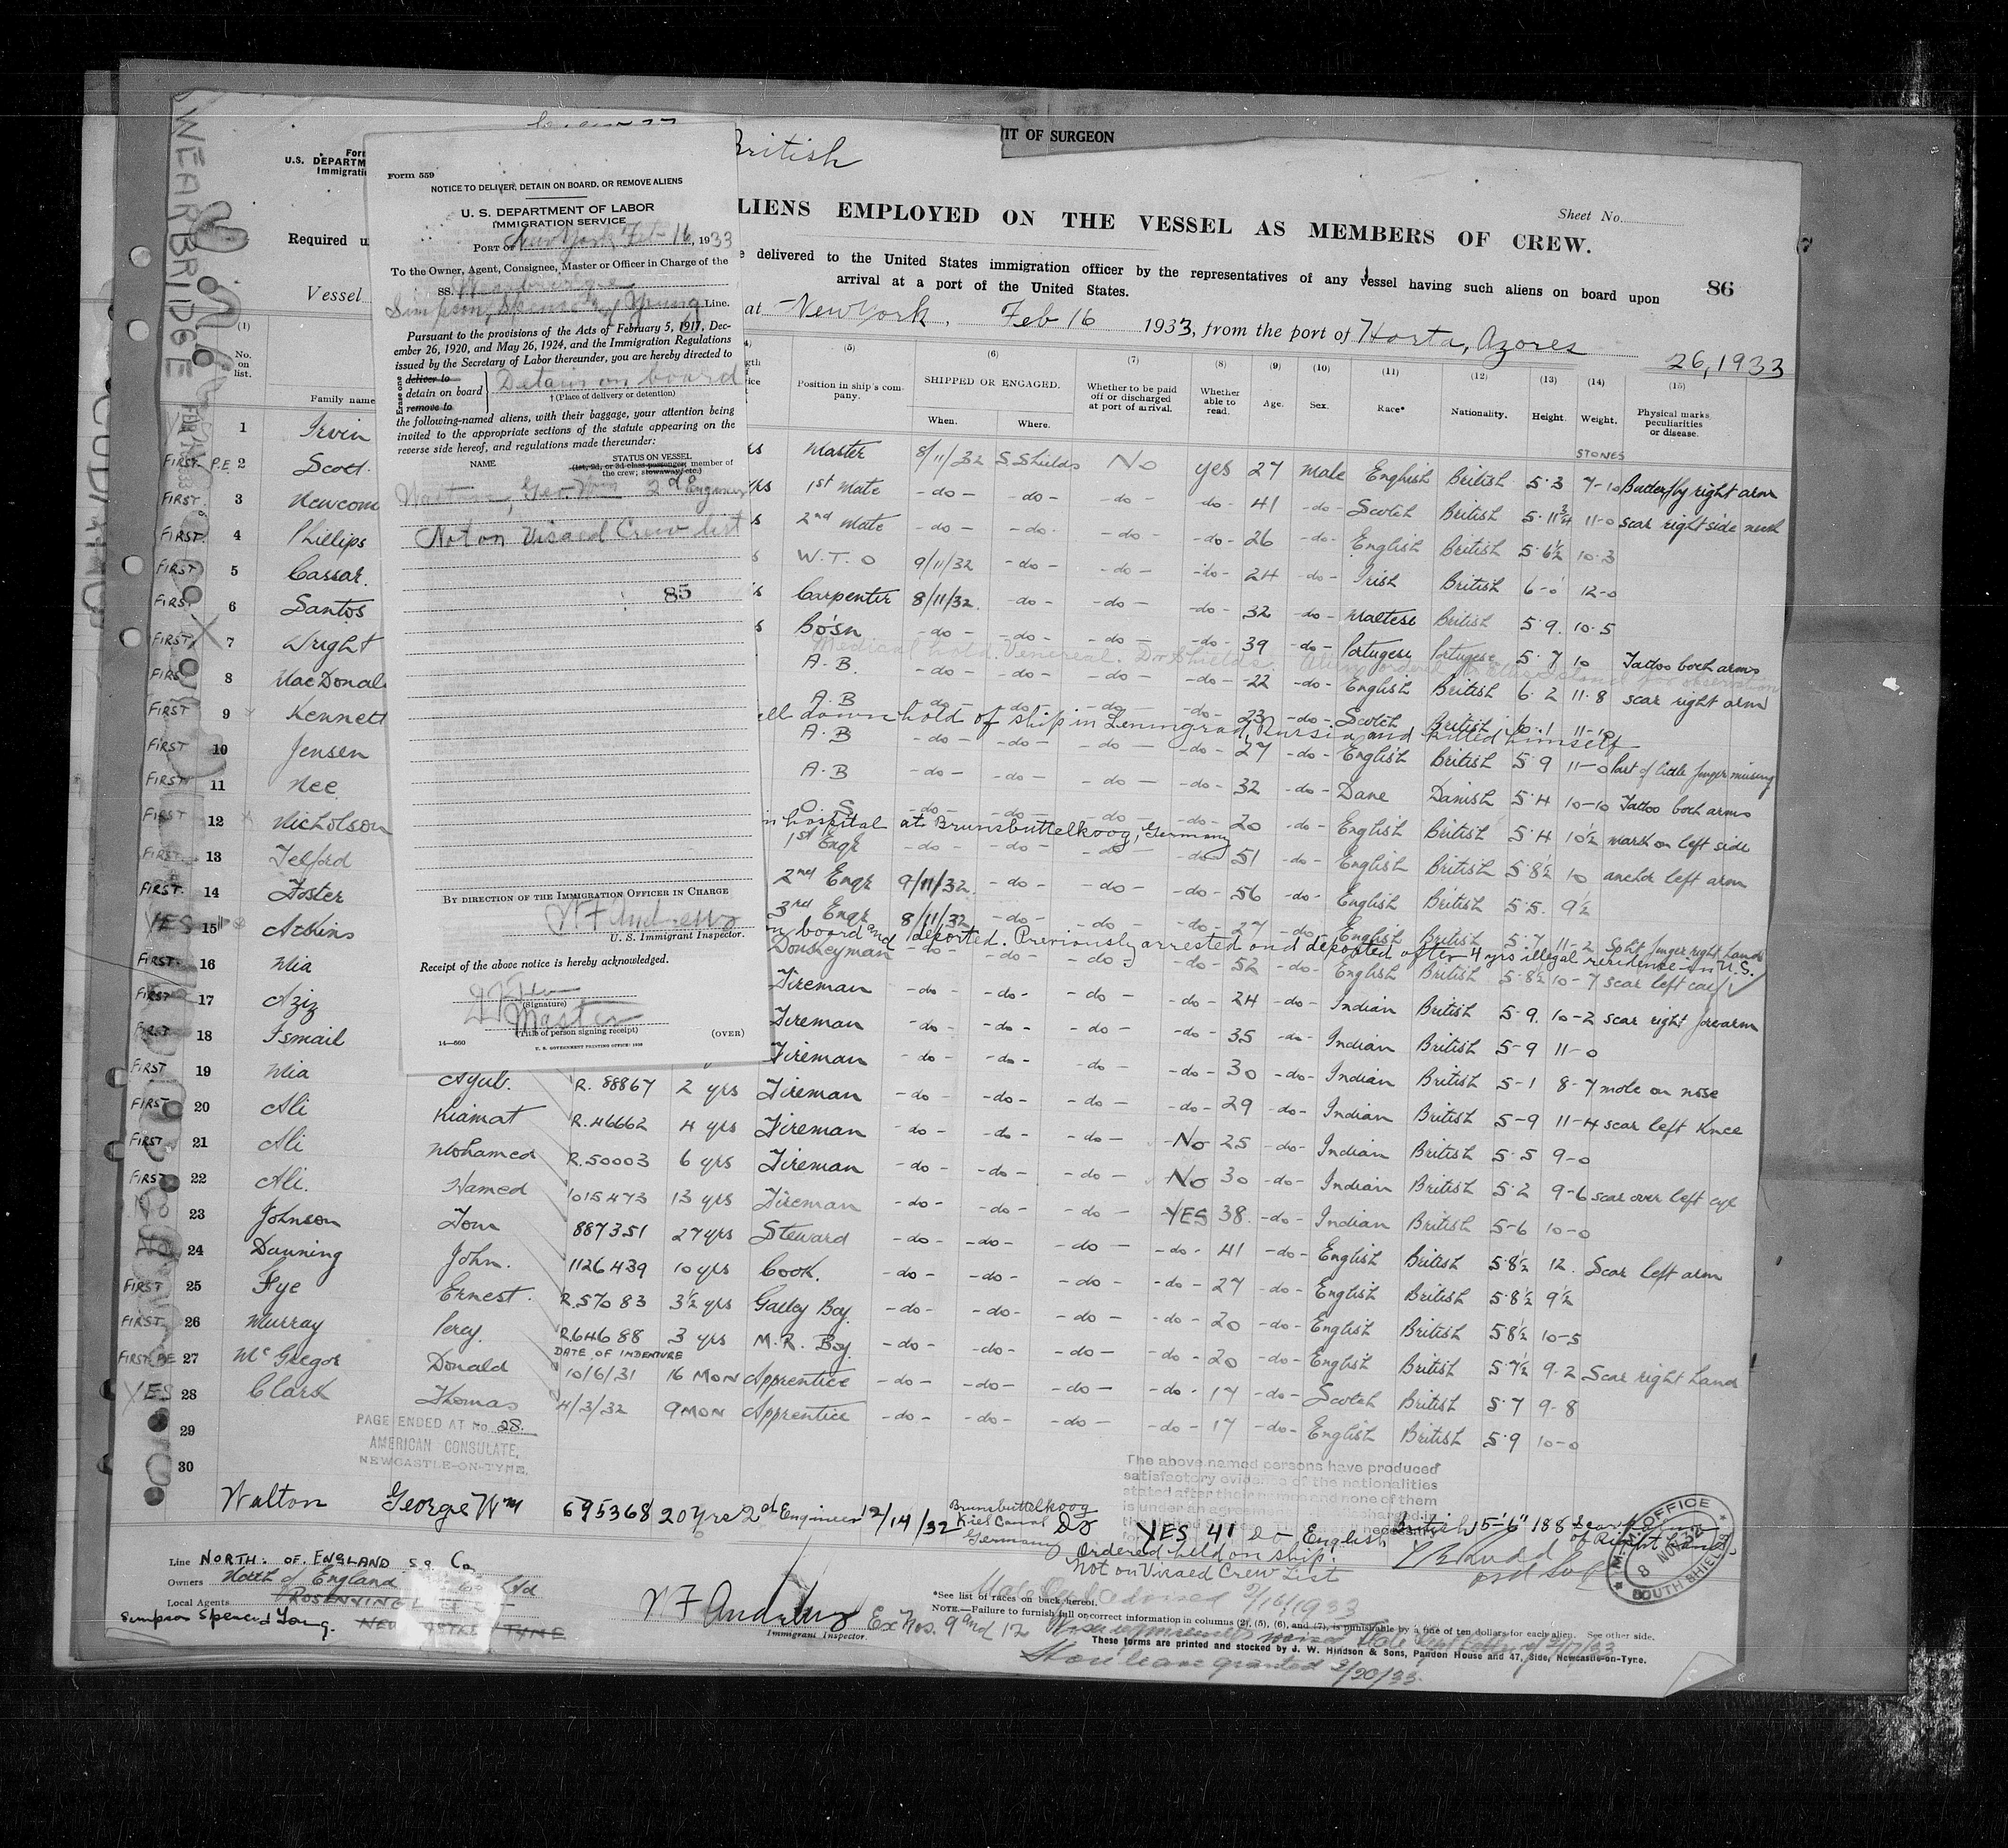 WEARBRIDGE
Form 559
NOTICE TO DELIVER, DETAIN ON BOARD, OR REMOVE ALIENS
U. S. DEPARTMENT OF LABOR
IMMIGRATION SERVICE
PORT OF New York Feb 16, 1933
To the Owner, Agent, Consignee, Master or Officer in Charge of the
SS. Wearbridge
Simpson, Spence & Young Line.
Pursuant to the provisions of the Acts of February 5, 1917, Dec-
ember 26, 1920, and May 26, 1924, and the Immigration Regulations
issued by the Secretary of Labor thereunder, you are hereby directed to
Erase one
deliver to
detain on board
remove to
Detain on board
† (Place of delivery or detention)
the following-named aliens, with their baggage, your attention being
invited to the appropriate sections of the statute appearing on the
reverse side hereof, and regulations made thereunder:
NAME STATUS ON VESSEL
(1st, 2d, or 3d class passenger, member of
the crew, stowaway, etc.)
Geo. Wm 2d Engineer
Not on Visaed Crew list
85
BY DIRECTION OF THE IMMIGRATION OFFICER IN CHARGE
W F Andrews
U. S. Immigrant Inspector.
Receipt of the above notice is hereby acknowledged.
(Signature)
Master
(Title of person signing receipt)
(OVER)
14—560 U. S. GOVERNMENT PRINTING OFFICE
Form
U.S. DEPARTM
Immigrati
Required u
Vessel
British
IT OF SURGEON
Sheet No.
LIENS EMPLOYED ON THE VESSEL AS MEMBERS OF CREW.
e delivered to the United States immigration officer by the representatives of any vessel having such aliens on board upon
arrival at a port of the United States.
86
at New York, Feb 16 1933, from the port of Horta, Azores
26, 1933
(1) (5) (6) (7) (8) (9) (10) (11) (12) (13) (14) (15)
No. on list. Family name Position in ship's company. SHIPPED OR ENGAGED. When. Where. Whether to be paid off or discharged at port of arrival. Whether able to read. Age. Sex. Race* Nationality. Height. Weight. Physical marks, peculiarities or disease.
STONES
1 Irvin Master 8/11/32 S. Shields No yes 27 male English British 5·3 7-10 Butterfly right arm
FIRST P.E. 2 Scott 1st Mate -do- -do- -do- -do- 41 -do- Scotch British 5·11¾ 11-0 scar right side neck
FIRST 3 Newcom 2nd Mate -do- -do- -do- -do- 26 -do- English British 5·6½ 10·3
FIRST 4 Phillips W.T.O 9/11/32 -do- -do- -do- 24 -do- Irish British 6-0 12-0
FIRST 5 Cassar. Carpenter 8/11/32 -do- -do- -do- 32 -do- Maltese British 5·9. 10·5
FIRST 6 Santos Bo'sn -do- -do- -do- -do- 39 -do- Portugese Portugese 5·7 10 Tattoo both arms
Medical hold. Venereal. Dr Shields.
FIRST 7 Wright A.B. -do- -do- -do- -do- 22 -do- English British 6·2 11·8 scar right arm
FIRST 8 MacDonal A.B -do- -do- -do- -do- 23 -do- Scotch British 6·1 11-10
ell down hold of ship in Leningrad, Russia and killed himself
FIRST 9 Kennett A.B -do- -do- -do- -do- 27 -do- English British 5·9 11-0 Part of little finger missing
FIRST 10 Jensen A.B -do- -do- -do- -do- 32 -do- Dane Danish 5·4 10-10 Tattoo both arms
FIRST 11 Nee O.S. -do- -do- -do- -do- 20 -do- English British 5·4 10½ mark on left side
n hospital at Brunsbuttelkoog, Germany
FIRST 12 Nicholson 1st Engr -do- -do- -do- -do- 51 -do- English British 5·8½ 10 anchor left arm
FIRST 13 Telford 2nd Engr 9/11/32 -do- -do- -do- 56 -do- English British 5·5. 9½
FIRST 14 Foster 3rd Engr 8/11/32 -do- -do- -do- 27 -do- English British 5·7 11-2 Split finger right hand
n board and deported. Previously arrested and deported after 4 yrs illegal residence in U.S.
YES 15 Atkins Donkeyman -do- -do- -do- -do- 52 -do- English British 5·8½ 10-7 scar left
FIRST 16 Mia Fireman -do- -do- -do- -do- 24 -do- Indian British 5·9. 10-2 scar right forearm
FIRST 17 Aziz Fireman -do- -do- -do- -do- 35 -do- Indian British 5-9 11-0
FIRST 18 Ismail Fireman -do- -do- -do- -do- 30 -do- Indian British 5-1 8-7 mole on nose
FIRST 19 Mia Ayub. R. 88867 2 yrs Fireman -do- -do- -do- -do- 29 -do- Indian British 5-9 11-4 scar left Knee
FIRST 20 Ali Kiamat R. 46662 4 yrs Fireman -do- -do- -do- No 25 -do- Indian British 5·5 9-0
FIRST 21 Ali Mohamed R. 50003 6 yrs Fireman -do- -do- -do- No 30 -do- Indian British 5·2 9-6 scar over left eye
FIRST 22 Ali. Hamed 1015473 13 yrs Fireman -do- -do- -do- YES 38. -do- Indian British 5-6 10-0
No 23 Johnson Tom 887351 27 yrs Steward -do- -do- -do- -do- 41 -do- English British 5·8½ 12. Scar left arm
No 24 Dunning John. 1126439 10 yrs Cook. -do- -do- -do- -do- 27 -do- English British 5·8½ 9½
FIRST 25 Fye Ernest. R.57083 3½ yrs Galley Boy. -do- -do- -do- -do- 20 -do- English British 5·8½ 10-5
FIRST 26 Murray Percy. R64688 3 yrs M.R. Boy. -do- -do- -do- -do- 20 -do- English British 5·7½ 9·2 Scar right hand
DATE OF INDENTURE
FIRST P.E 27 McGregor Donald 10/6/31 16 MON Apprentice -do- -do- -do- -do- 17 -do- Scotch British 5·7 9-8
YES 28 Clark Thomas 4/3/32 9 MON Apprentice -do- -do- -do- -do- 17 -do- English British 5·9 10-0
29
30
PAGE ENDED AT No 28.
AMERICAN CONSULATE,
NEWCASTLE-ON-TYNE.
The above named persons have produced
satisfactory evidence of the nationalities
stated after their names and none of them
is under an agreement
Walton George Wm 695368 20 yrs 2d Engineer 12/14/32 Brunsbuttelkoog Kiel Canal Germany Do YES 41 Do English British 5'-6" 188 of Right Hand
Ordered held on ship.
Not on Visaed Crew List
M.M. OFFICE
8 NOV 32
SOUTH SHIELDS
Line NORTH. OF. ENGLAND S.S. Co
Owners North of England Ltd
Local Agents
Simpson Spence & Young.
W F Andrews
Immigrant Inspector.
Ex Nos. 9 and 12
*See list of races on back hereof.
NOTE.—Failure to furnish full or correct information in columns (2), (5), (6), and (7), is punishable by a fine of ten dollars for each alien. See other side.
These terms are printed and stocked by J. W. Hindson & Sons, Pandon House and 47, Side, Newcastle-on-Tyne.
Shore leave granted 2/20/33